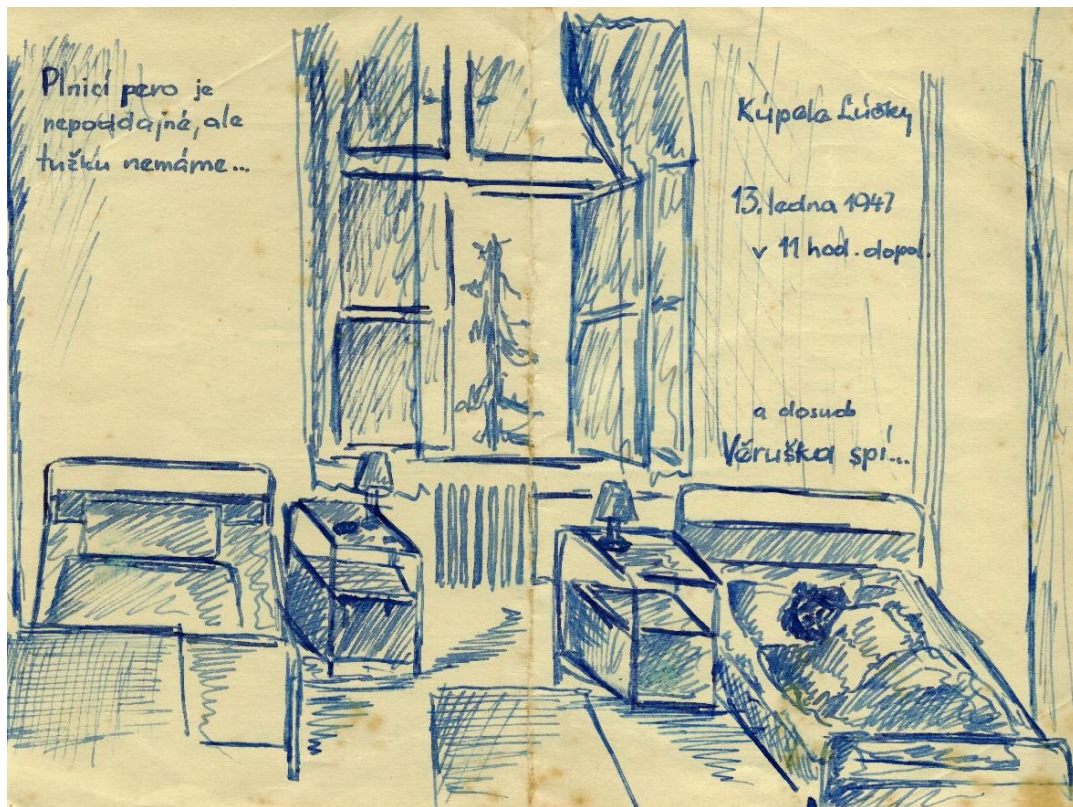 Plnicí pero je
nepoddajné, ale
tužku nemáme...
Kúpele Lúčky
13. ledna 1947
v 11 hod. dopol.
a dosud
Věruška spí...